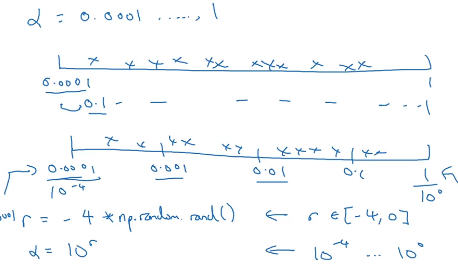 α = 0.0001 ....., 1
0.0001 1
0.1 1
0.0001 0.001 0.01 0.1 1
10⁻⁴ 10⁰
r = -4 * np.random.rand() ← r ∈ [-4, 0]
α = 10ʳ ← 10⁻⁴ ... 10⁰